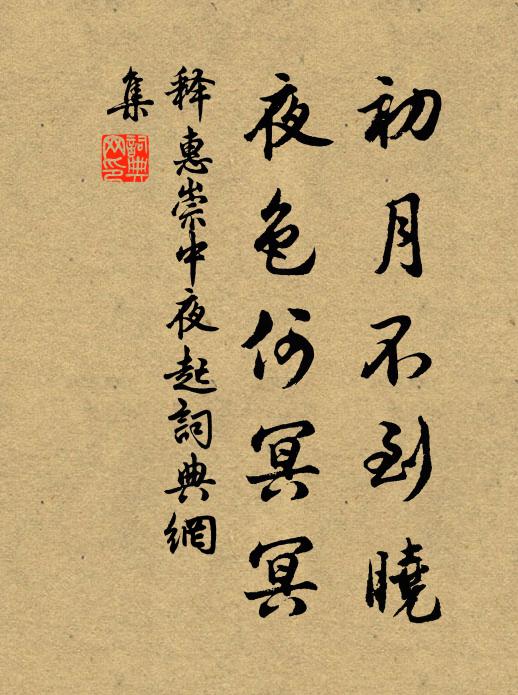 初月不到曉
夜色何冥冥
释惠崇中夜起詞典網
集
詞典网印